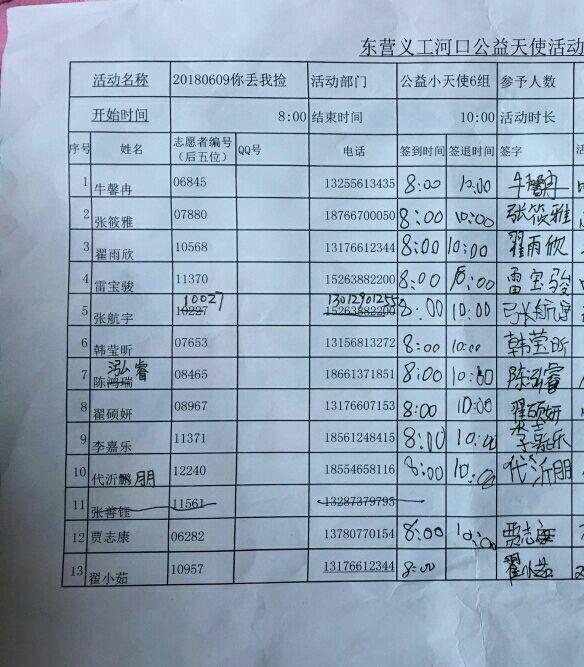 东营义工河口公益天使活动
活动名称 20180609你丢我捡 活动部门 公益小天使6组 参予人数
开始时间 8:00 结束时间 10:00 活动时长
序号 姓名 志愿者编号（后五位） QQ号 电话 签到时间 签退时间 签字
1 牛馨冉 06845 13255613435 8:00 10:00 牛馨冉
2 张筱雅 07880 18766700050 8:00 10:00 张筱雅
3 翟雨欣 10568 13176612344 8:00 10:00 翟雨欣
4 雷宝骏 11370 15263882200 8:00 10:00 雷宝骏
5 张航宇 10227 10027 15263882200 8:00 10:00 张航宇
6 韩莹昕 07653 13156813272 8:00 10:00 韩莹昕
7 陈鸿瑞 泓睿 08465 18661371851 8:00 10:00 陈泓睿
8 翟硕妍 08967 13176607153 8:00 10:00 翟硕妍
9 李嘉乐 11371 18561248415 8:00 10:00 李嘉乐
10 代沂鹏 朋 12240 18554658116 8:00 10:00 代沂朋
11 张善钰 11561 13287379795
12 贾志康 06282 13780770154 8:00 10:00 贾志康
13 翟小茹 10957 13176612344 8:00 翟小茹